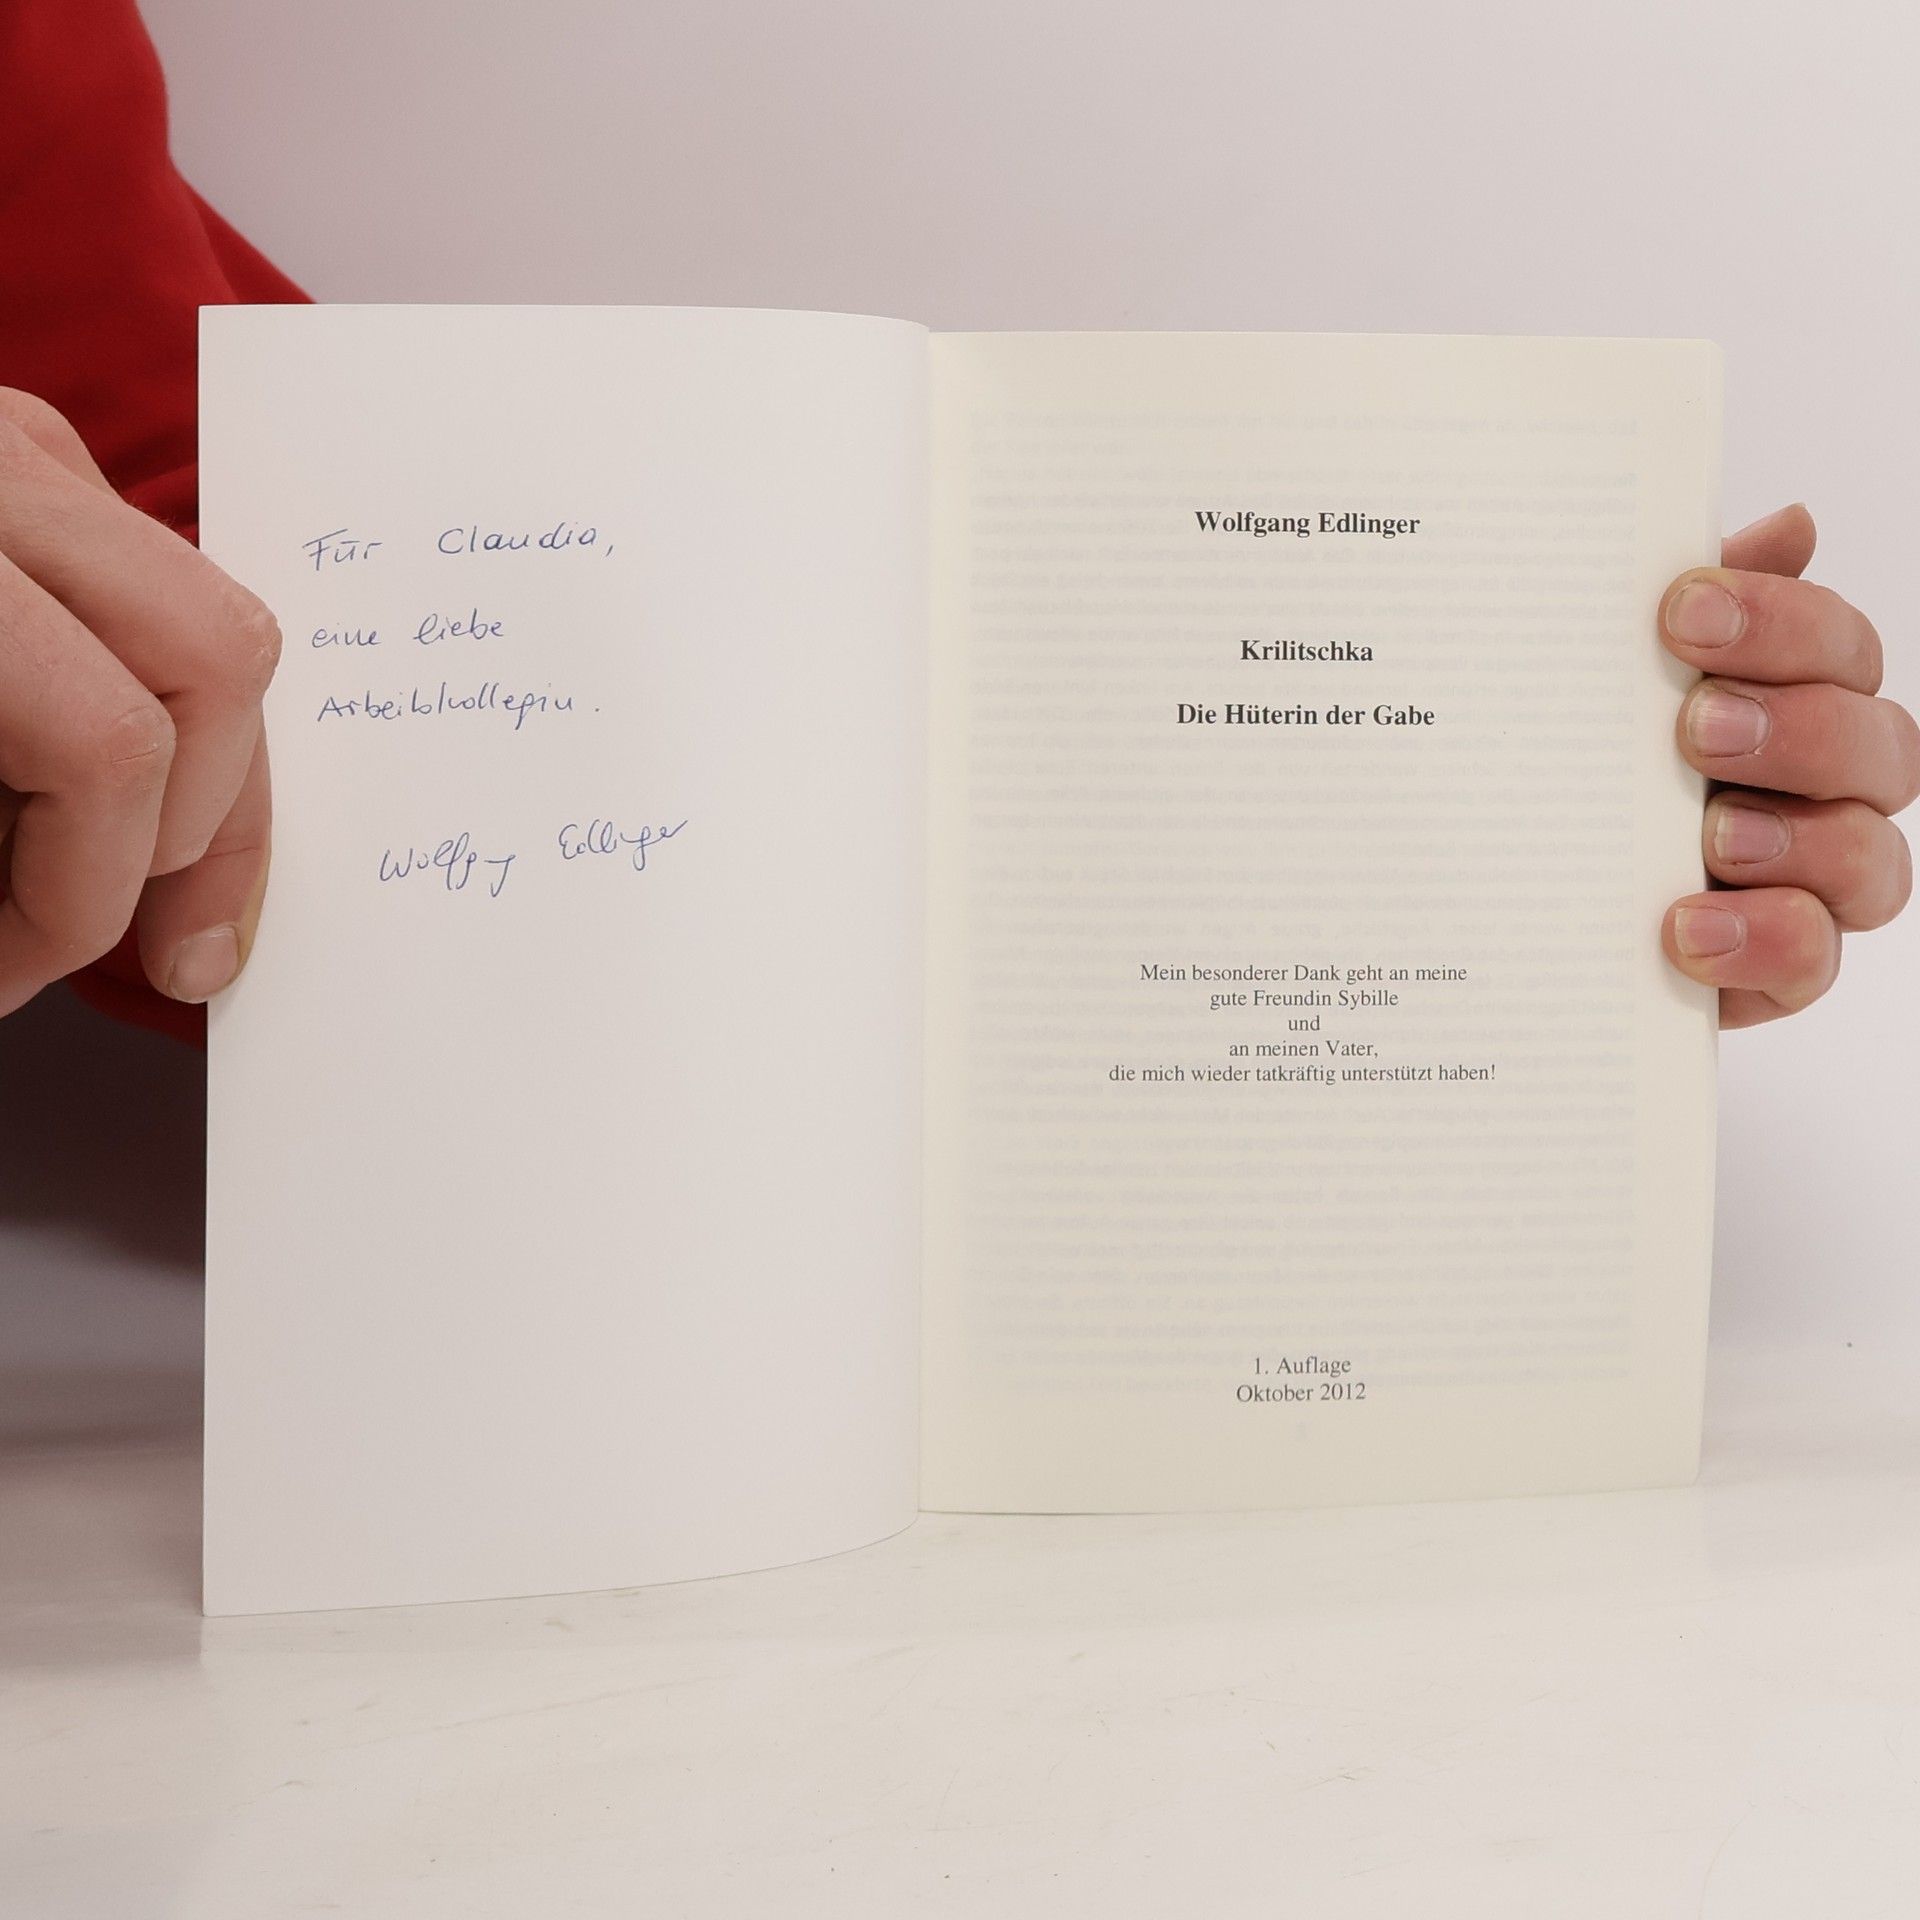 Für Claudia,
eine liebe
Arbeitskollegin.
Wolfgang Edlinger
Wolfgang Edlinger
Krilitschka
Die Hüterin der Gabe
Mein besonderer Dank geht an meine
gute Freundin Sybille
und
an meinen Vater,
die mich wieder tatkräftig unterstützt haben!
1. Auflage
Oktober 2012